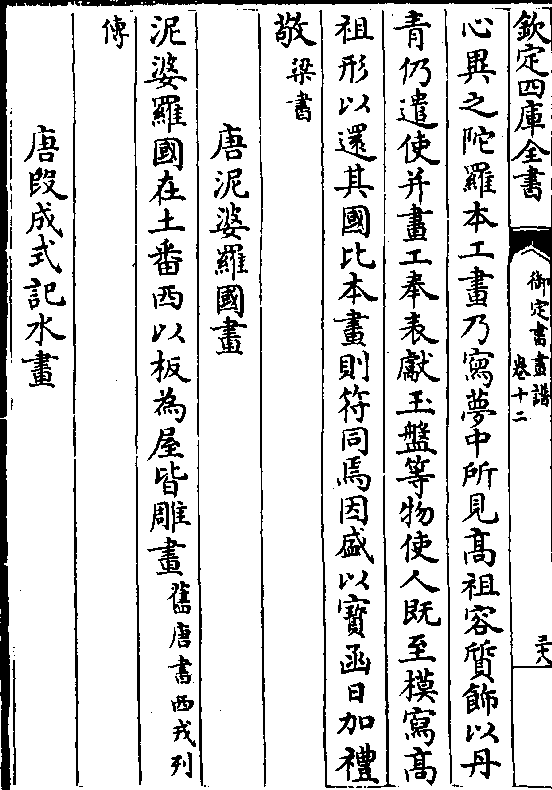 欽定四庫全書
御定書畫譜
卷十二
三六
心異之陀羅本工畫乃寫夢中所見髙祖容質飾以丹
青仍遣使并畫工奉表獻玉盤等物使人既至模寫髙
祖形以還其國比本畫則符同焉因盛以寳函日加禮
敬梁書
唐泥婆羅國畫
泥婆羅國在土番西以板為屋皆雕畫舊唐書西戎列
傳
唐段成式記水畫